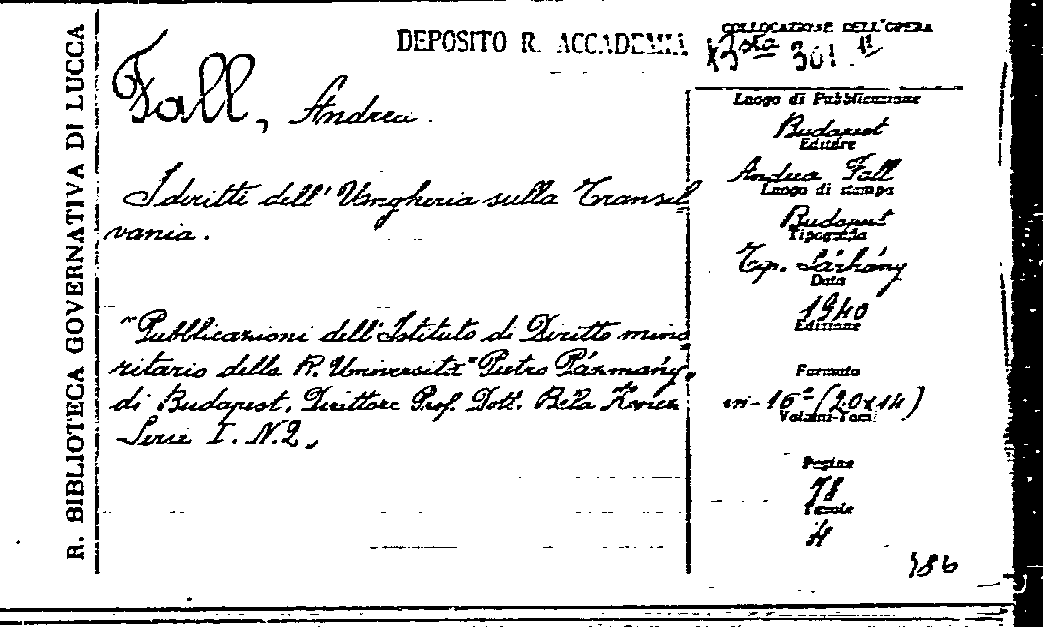 R. BIBLIOTECA GOVERNATIVA DI LUCCA
DEPOSITO R. ACCADEMIA
COLLOCAZIONE DELL'OPERA
Bsta 301.
Fall, Andrea.
I diritti dell'Ungheria sulla Transil
vania.
"Pubblicazioni dell'Istituto di Diritto mino
ritario della R. Università "Pietro Pázmány,
di Budapest. Direttore Prof. Dott. Bela
Serie I. N.2,
Luogo di Pubblicazione
Budapest
Editore
Andrea Fall
Luogo di stampa
Budapest
Tipografia
Tip. Sárkány
Data
1940
Edizione
Formato
in-16° (20x14)
Volumi-Tomi
Pagine
78
Tavole
4
486